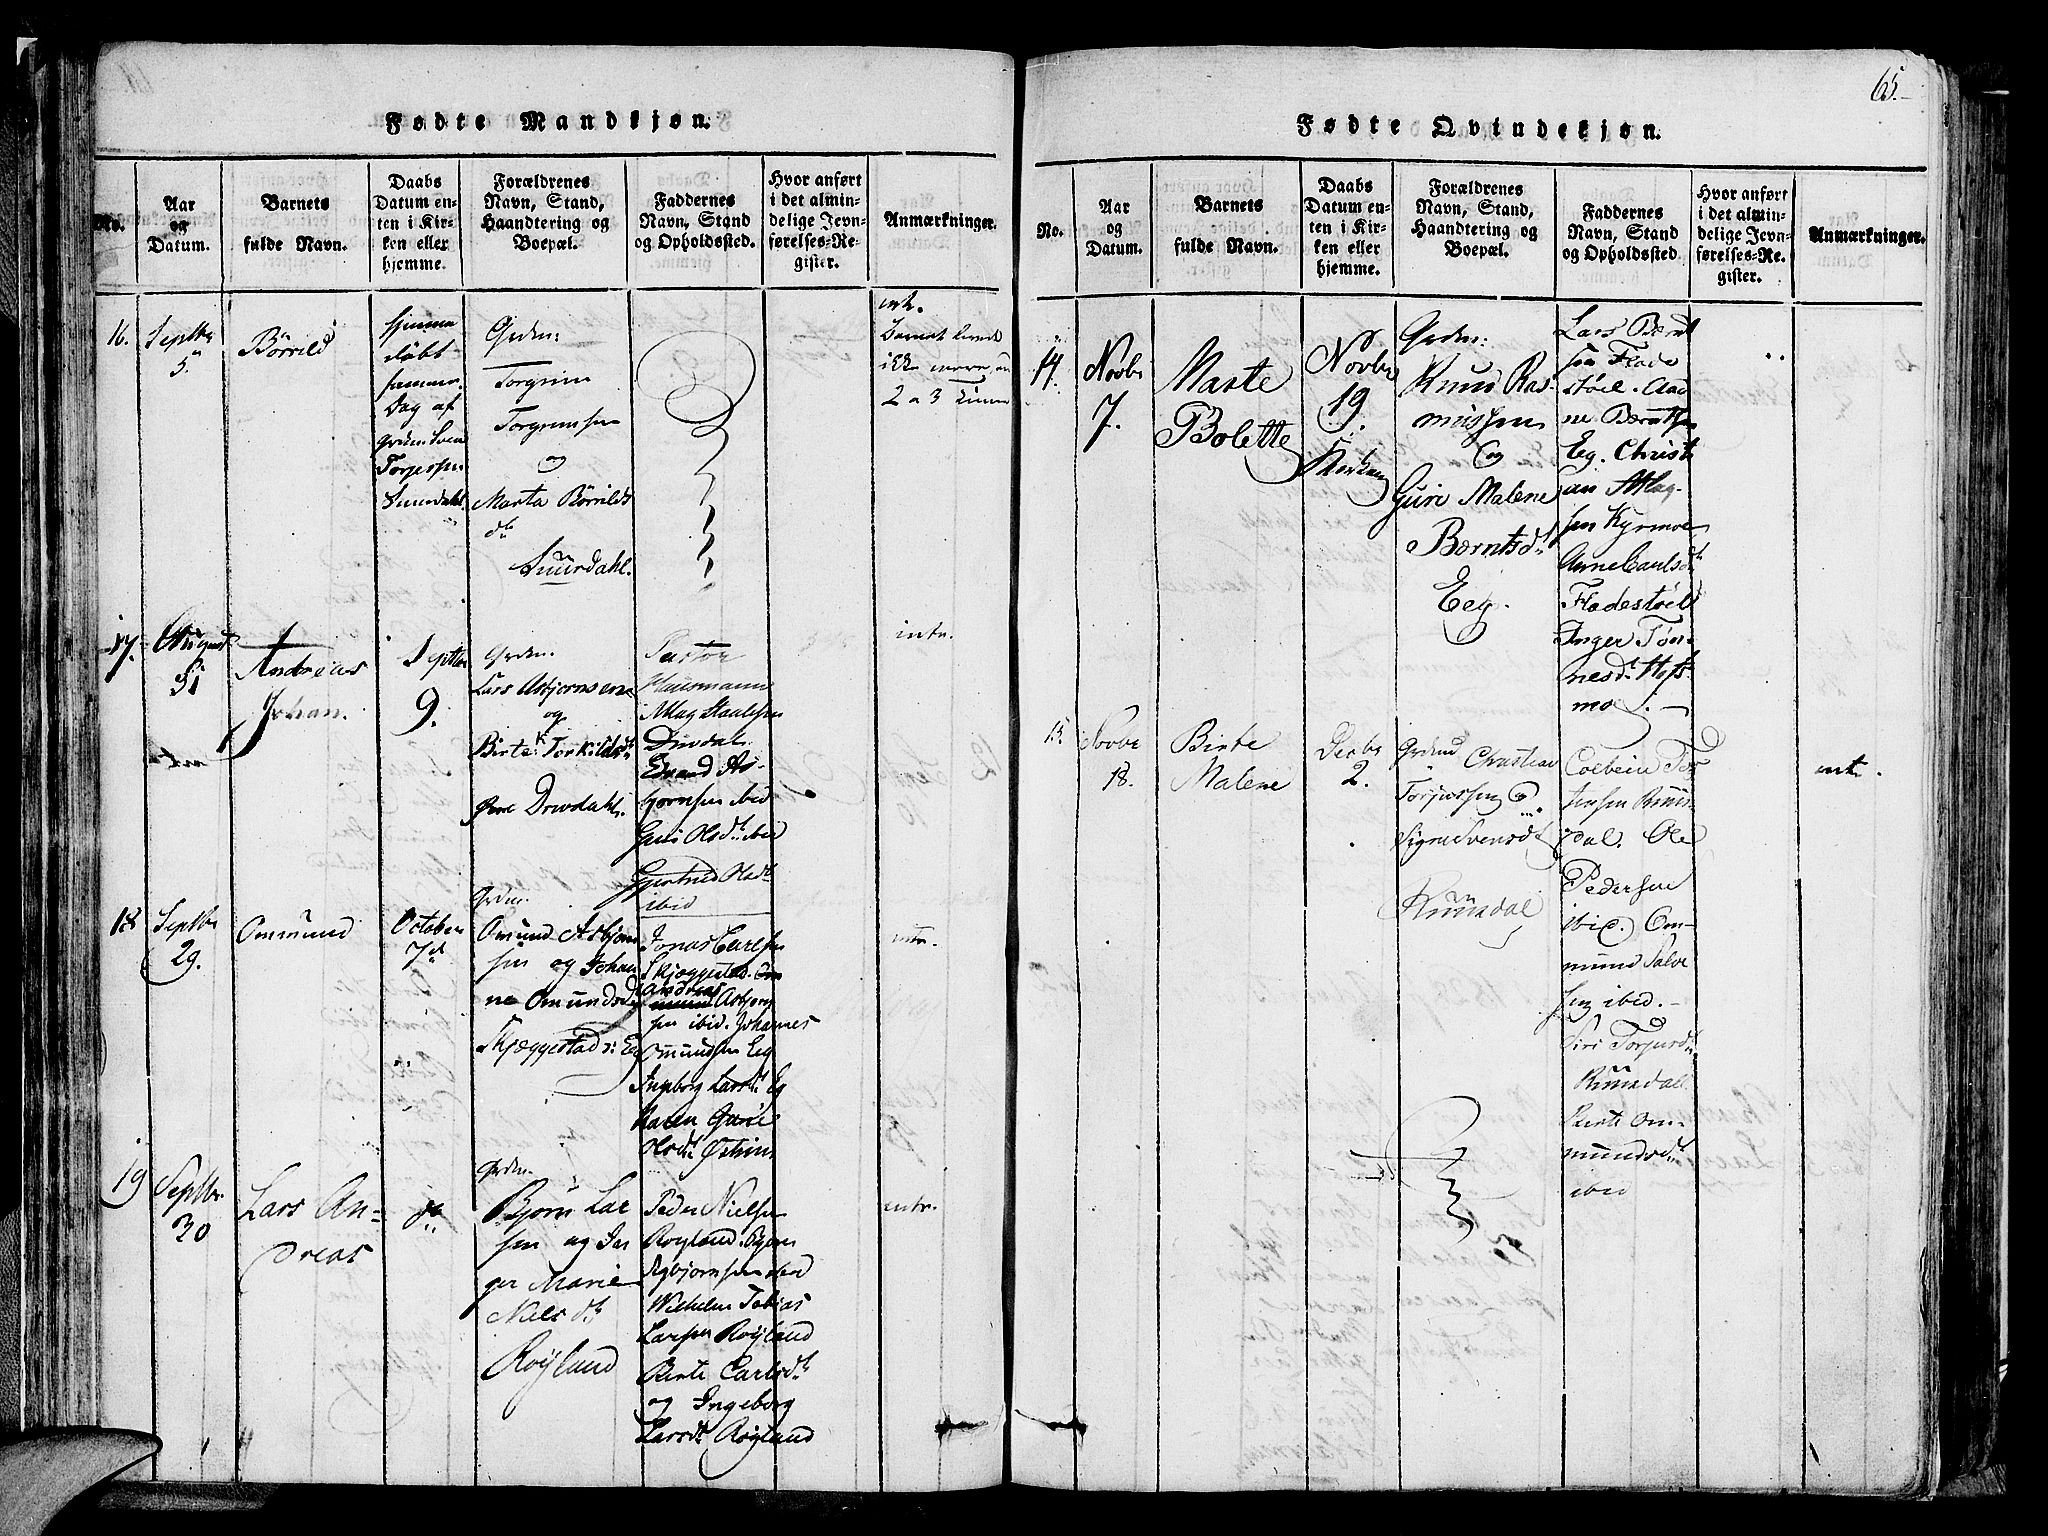 65.
Fødte Mandkjøn.
No.
Aar
og
Datum.
Barnets
fulde Navn.
Daabs
Datum en-
ten i Kir-
ken eller
hjemme.
Forældrenes
Navn, Stand,
Haandtering og
Boepæl.
Faddernes
Navn, Stand
og Opholdssted.
Hvor anført
i det almin-
delige Jevn-
førelses-Re-
gister.
Anmærkninger.
16.
Septbr
5.
Börrild
hjemme
døbt
samme
Dag af
grden Sven
Torjessen
Suurdahl.
Grden:
Torgrim
Torgrimsen
og
Marta Börrilds
dr
Suurdahl.
int.
Barnet
ikke mere
2 a 3
17.
August
31
Andreas
Johan.
Septbr
9.
Grden.
Lars Asbjornsen
og
Birte Torkildsdt
Dirdahl.
Pastor
Hausmann
Aslag Staalesen
Dirdal
Evand As-
bjornsen ibid
Guri Olsdt ibid
Gjertrud Olsdt
ibid
intr.
18
Septbr
29.
Ommund
October
7d
Grden.
Omund Asbjorn
sen og Johan
ne Omundsd
Skjæggestad i Eg
Jonas Carlsen
Skjæggestad. Om
Andreas
mund Asbjorn
sen ibid. Johannes
Omundsen Eeg
Ingeborg Larsdt Eg
Karen Gurie
Olsdt
intr.
19
Septbr.
30
Lars An=
dreas
do
Grden.
Bjørn Lar
sen og In
ger Marie
Niels dt
Röyland
Peder Nielsen
Røyland. Bjørn
Asbjornsen ibid
Wilhelm Tobias
Larsen Roÿland
Berte Carlsdt
og Ingeborg
Larsdt Røyland
intr.
Fødte Qvindekjøn.
No.
Aar
og
Datum.
Barnets
fulde Navn.
Daabs
Datum en-
ten i Kir-
ken eller
hjemme.
Forældrenes
Navn, Stand,
Haandtering og
Boepæl.
Faddernes
Navn, Stand
og Opholdssted
Hvor anført
i det almin-
delige Jevn-
førelses-Re-
gister.
Anmærkninger.
14.
Novbr
7.
Marte
Bolette
Novbr
19.
Kirken
Grden:
Knud Ras
mussen
og
Guri Malene
Berntsdt
Eeg.
Lars Bernt
sen Flade
støel. Aad
ne Berntsen
Eg. Christi
an Aslag-
sen Kyrmoe
Anne Carlsdt
Fladestøel
Inger Tøn-
nesdt. Hofs
moe.
15.
Novbr
18.
Birte
Malene
Decbr
2.
Grdmd Christian
Torjussen og
Signe Svensdt
Ruusdal
Colbein Tor
jussen Ruus
dal. Ole
Pedersen
ibid. Om-
mund Salve
sen ibid.
Siri Torjusdt
Ruusdal
Berte Om-
mundsdt
ibid
int.